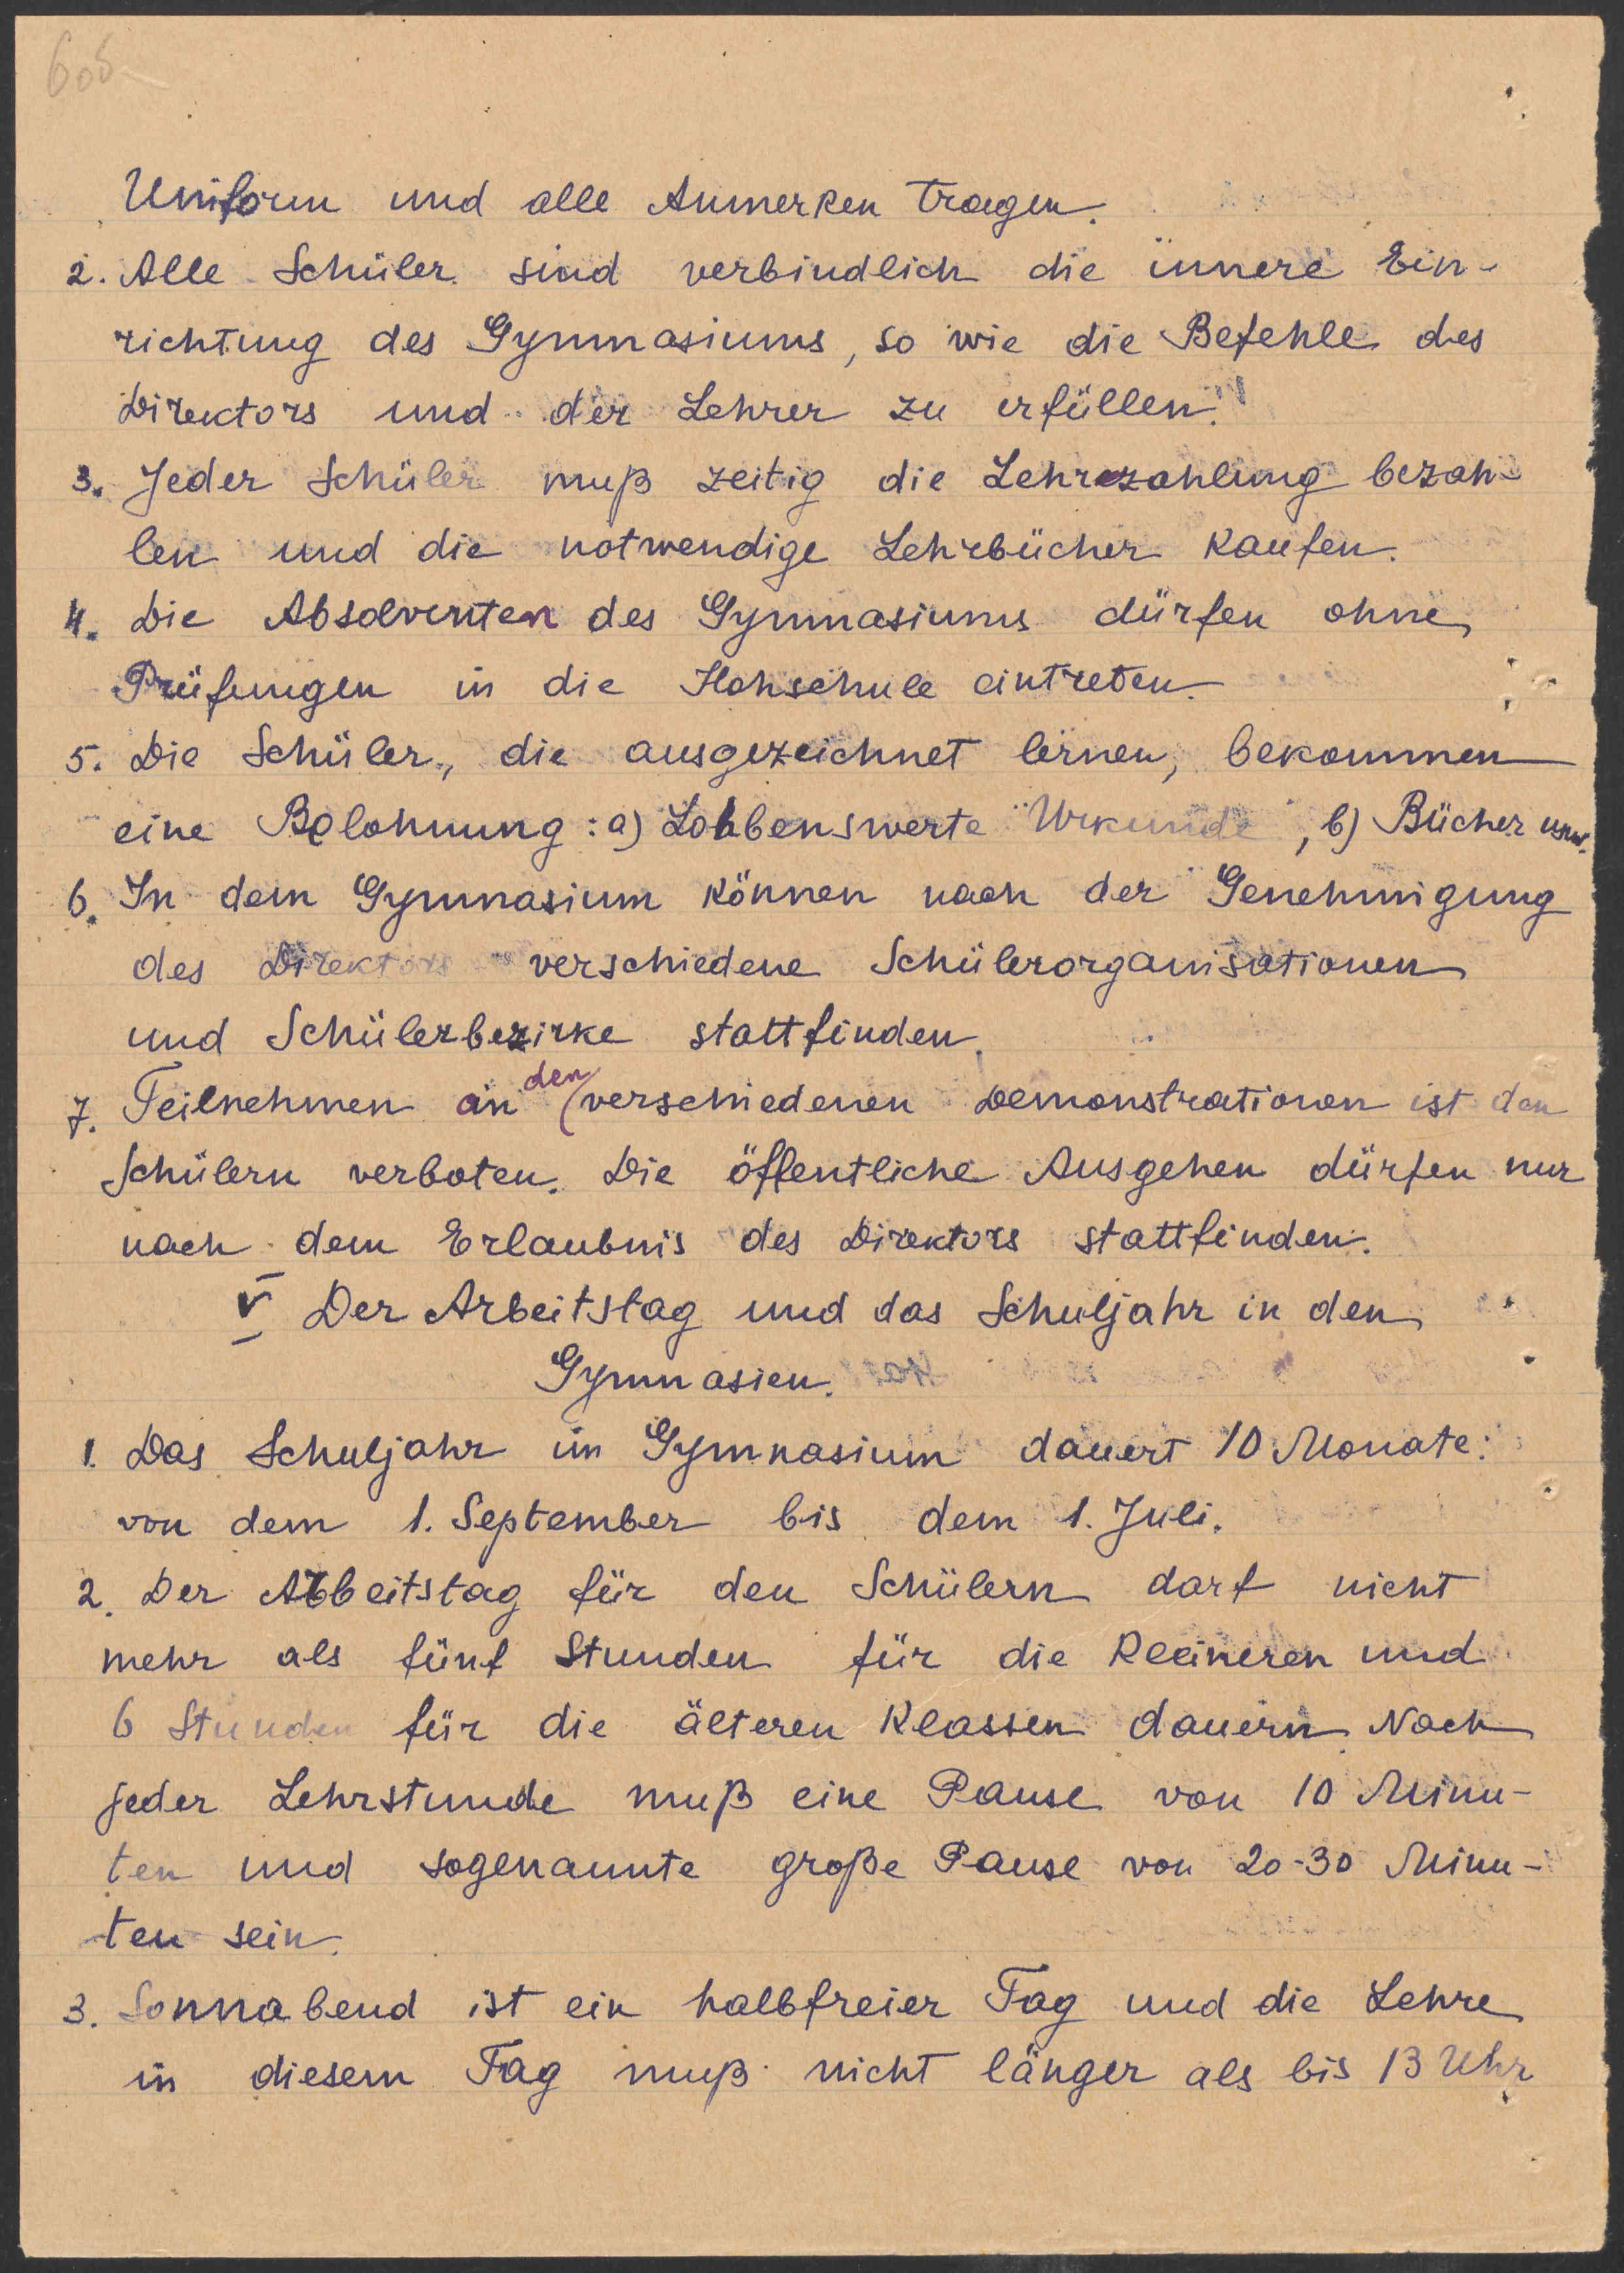 6об
Uniform und alle Anmerken tragen.
2. Alle Schüler sind verbindlich die innere Ein-
richtung des Gymnasiums, so wie die Befehle des
Direktors und der Lehrer zu erfüllen.
3. Jeder Schüler muß zeitig die Lehrzahlung bezah-
len und die notwendige Lehrbücher kaufen.
4. Die Absolventen des Gymnasiums dürfen ohne
Prüfungen in die Hohschule eintreten.
5. Die Schüler, die ausgezeichnet lernen, bekommen
eine Belohnung: a) Lobbenswerte Urkunde, b) Bücher usw.
6. In dem Gymnasium können nach der Genehmigung
des Direktors verschiedene Schülerorganisationen
und Schülerbezirke stattfinden.
7. Teilnehmen an den verschiedenen Demonstrationen ist den
Schülern verboten. Die öffentliche Ausgehen dürfen nur
nach dem Erlaubnis des Direktors stattfinden.
V Der Arbeitstag und das Schuljahr in den
Gymnasien.
1. Das Schuljahr im Gymnasium dauert 10 Monate:
von dem 1. September bis dem 1. Juli.
2. Der Arbeitstag für den Schülern darf nicht
mehr als fünf Stunden für die kleineren und
6 Stunden für die älteren Klassen dauern. Nach
jeder Lehrstunde muß eine Pause von 10 Minu-
ten und sogenannte große Pause von 20-30 Minu-
ten sein.
3. Sonnabend ist ein halbfreier Tag und die Lehre
in diesem Tag muß nicht länger als bis 13 Uhr